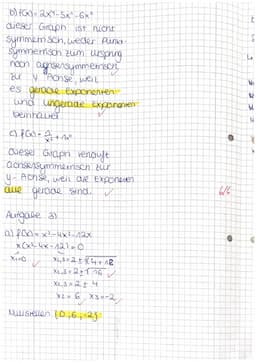 b) f(x) = 2x⁴-5x³-6x²
dieser Graph ist nicht
symmetrisch, weder Punkt-
symmetrisch zum Ursprung
noch achsensymmetrisch
zur y Achse, weil
es gerade Exponenten
und ungerade Exponenten
beinhaltet
dieser Graph verläuft
achsensymmetrisch zur
y-Achse, weil die Exponenten
alle gerade sind.
6/6
Aufgabe 3)
a) f(x) = x³-4x²-12x
x(x²-4x-12) = 0
x₁=0 x₂,₃ = 2±√4+12
x₂,₃ = 2±√16
x₂,₃ = 2±4
x₂ = 6, x₃ = -2
Nullstellen {0, 6, -2}